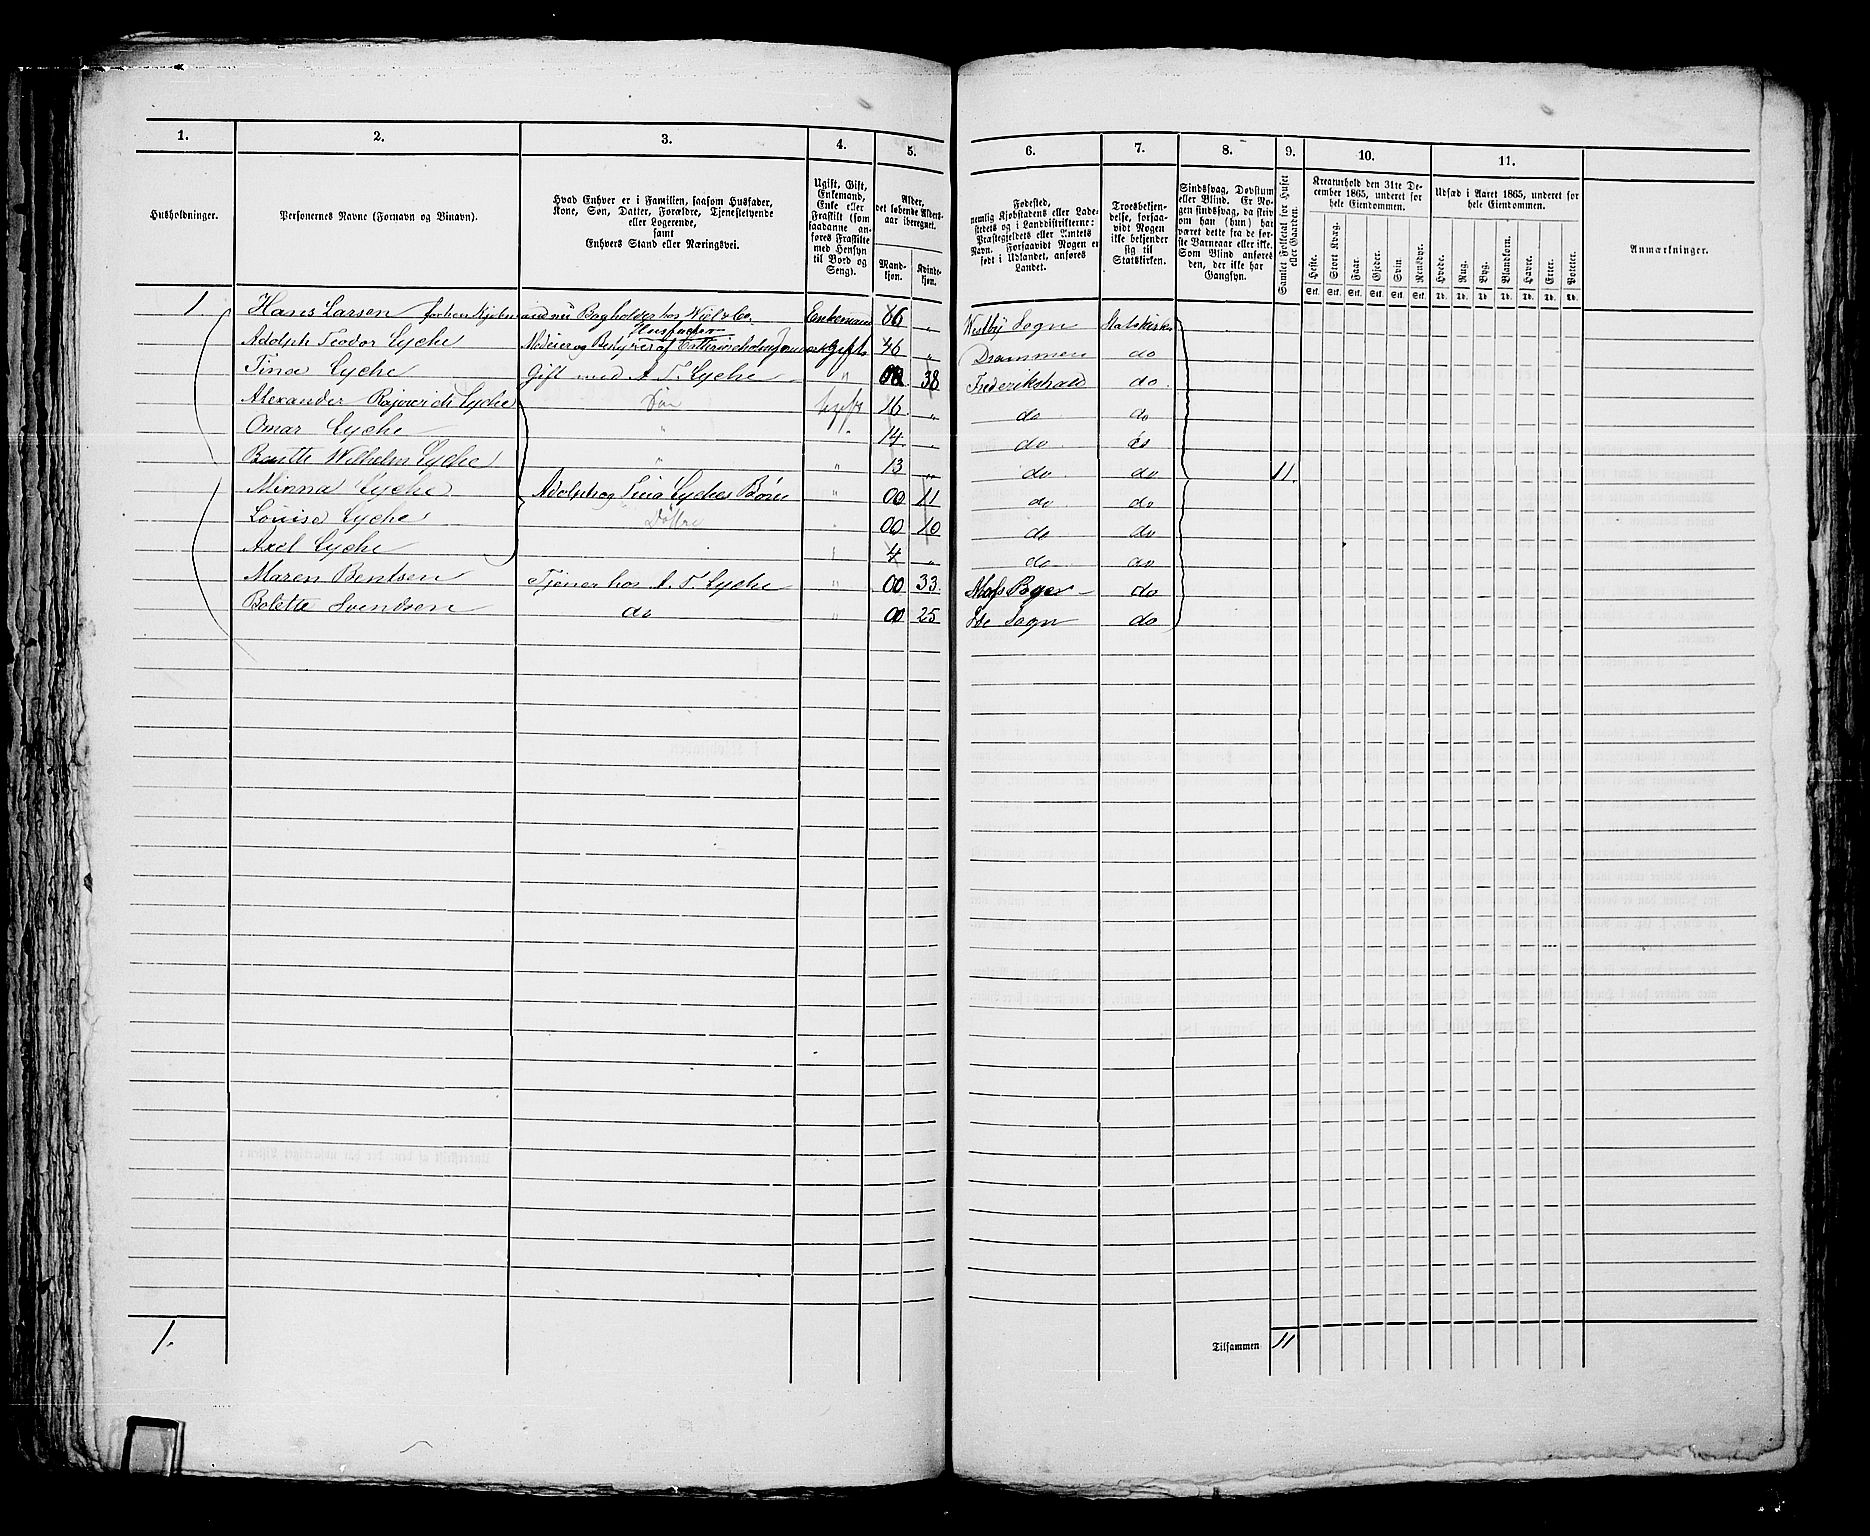 1. 2. 3. 4. 5. 6. 7. 8. 9. 10. 11.
Husholdninger.
Personernes Navne (Fornavn og Binavn).
Hvad Enhver er i Familien, saasom Husfader,
Kone, Søn, Datter, Forældre, Tjenestetyende
eller Logerende,
samt
Enhvers Stand eller Næringsvei.
Ugift, Gift,
Enkemand,
Enke eller
Fraskilt (som
saadanne an-
føres Fraskilte
med Hensyn
til Bord og
Seng).
Alder,
det løbende Alders-
aar iberegnet.
Mand-
kjøn.
Kvinde-
kjøn.
Fødested,
nemlig Kjøbstadens eller Lade-
stedets og i Landdistrikterne:
Præstegjeldets eller Annexets
Navn. Forsaavidt Nogen er
født i Udlandet, anføres
Landet.
Troesbekjen-
delse, forsaa-
vidt Nogen
ikke bekjender
sig til
Statskirken.
Sindssvag, Døvstum
eller Blind. Er No-
gen sindssvag, da skriv
om han (hun) har
været dette fra de før-
ste Barneaar eller ikke.
Som Blind anføres
den, der ikke har
Gangsyn.
Samlet Folketal for Huset
eller Gaarden.
Kreaturhold den 31te De-
cember 1865, underet for
hele Eiendommen.
Heste. Stort Kvæg. Faar. Gjeder. Svin. Rensdyr.
Stk. Stk. Stk. Stk. Stk. Stk.
Udsæd i Aaret 1865, underet for
hele Eiendommen.
Hvede. Rug. Byg. Blandkorn. Havre. Erter. Poteter.
Td. Td. Td. Td. Td. Td. Td.
Anmærkninger.
1 Hans Larsen forhen Kjøbmand nu Bogholder hos Wiel & Co. Enkemand 86 „ Vestby Sogn Statskirke
Husfader
Adolph Teodor Lyche Medeier og Bestyrer af Gift 46 „ Drammen do
Tina Lyche Gift med A T. Lyche „ 38 Frederikshald do.
Alexander Lyche Søn Ugift 16 „ do do
Omar Lyche „ „ 14 „ do do
Wilhelm Lyche „ „ 13 „ do do 11.
Minna Lyche Adolph og Tina Lyches Børn „ 00 11 do do
Louise Lyche Døttre „ 00 10 do do
Axel Lyche „ 4 „ do do
Maren Bentsen Tjener hos A. T. Lyche „ 00 33. do
Bolette Svendsen do „ 00 25 Ide Sogn do
1.
Tilsammen 11